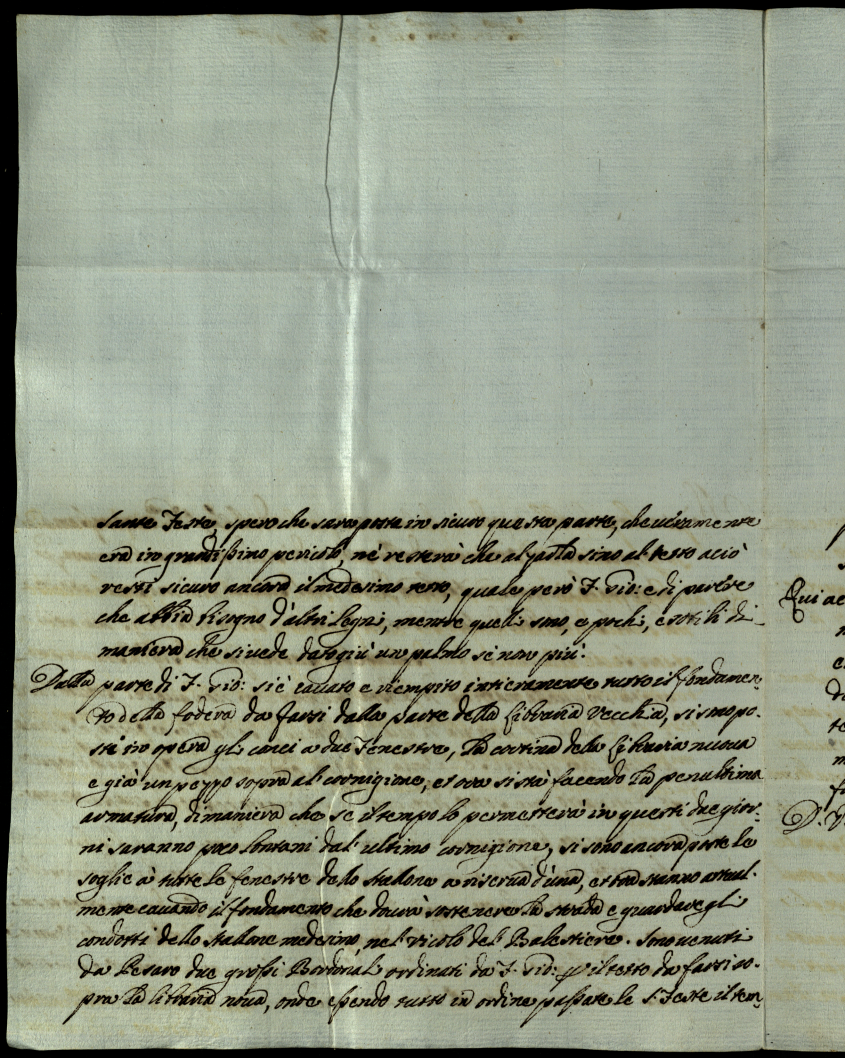 sante Feste, spero che sarà posta in sicuro questa parte, che veramente
era in grandissimo pericolo, nè resterà che alzarla sino al tetto acciò
resti sicuro ancora il medesimo tetto, quale però F. Gio: è di parere
che abbia bisogno d'altri Legni, mentre quelli sono, e pochi, e sottili di
maniera che si vede dato giù un palmo se non più.
Dalla parte di F. Gio: si è cavato e riempito intieramente tutto il fondamen=
to della fodera da farsi dalla parte della Libraria Vecchia, si sono po=
sti in opera gli conci a due Fenestre, la cortina della Libraria nuova
è già un pezzo sopra al cornigione, et ora si stà facendo la penultima
armatura, di maniera che se il tempo lo permetterà in questi due gior=
ni saranno poco lontani dal' ultimo cornigione, si sono ancora poste le
soglie à tutte le fenestre dello stallone a riserva d'una, et ora stanno attual=
mente cavando il fondamento che dovrà sostenere la strada e guardare gli
condotti dello stallone medesimo, nel vicolo del Balestriere. Sono venuti
da Pesaro due grossi Bordonali ordinati da F. Gio: p il tetto da farsi so=
pra la libraria nova, onde essendo tutto in ordine passate le S. Feste il tem=
Qui
D.